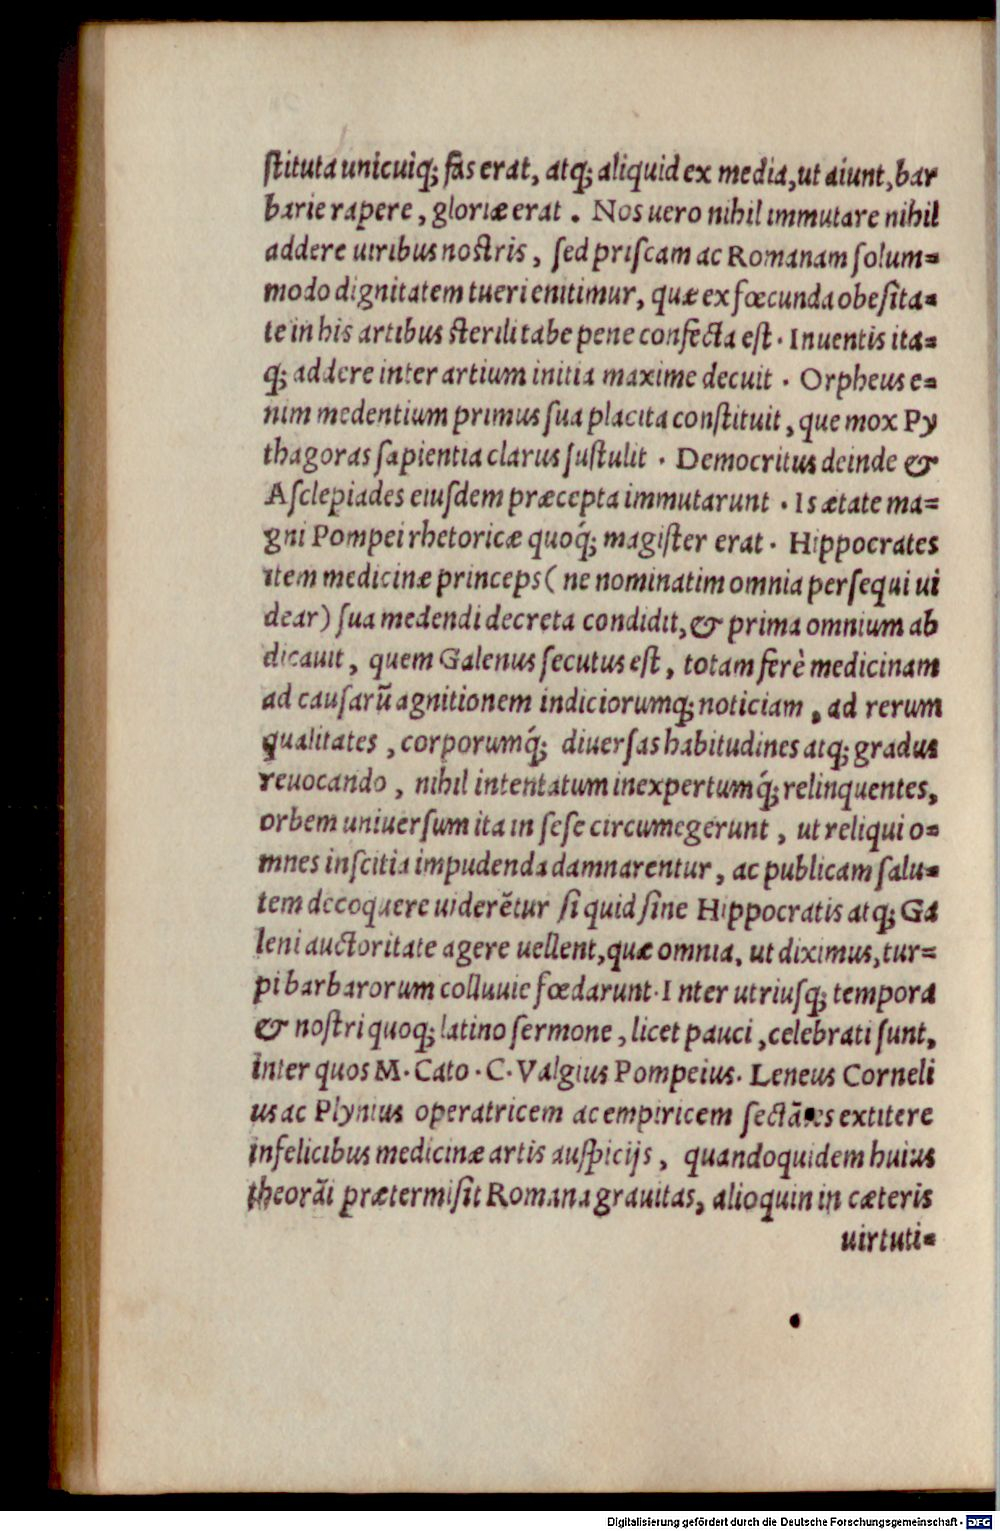 ſtituta unicuiq; fas erat, atq; aliquid ex media, ut aiunt, bar
barie rapere, gloriæ erat. Nos uero nihil immutare nihil
addere uiribus noſtris, ſed priſcam ac Romanam ſolum=
modo dignitatem tueri enitimur, quæ ex fœcunda obeſita=
te in his artibus ſterili tabe pene confecta eſt. Inuentis ita=
q; addere inter artium initia maxime decuit. Orpheus e=
nim medentium primus ſua placita conſtituit, que mox Py
thagoras ſapientia clarus ſuſtulit. Democritus deinde &
Aſclepiades eiuſdem præcepta immutarunt. Is ætate ma=
gni Pompei rhetoricæ quoq́; magiſter erat. Hippocrates
item medicinæ princeps (ne nominatim omnia perſequi ui
dear) ſua medendi decreta condidit, & prima omnium ab
dicauit, quem Galenus ſecutus eſt, totam ferè medicinam
ad cauſarū agnitionem indiciorumq; noticiam, ad rerum
qualitates, corporumq́; diuerſas habitudines atq; gradus
reuocando, nihil intentatum inexpertumq́; relinquentes,
orbem uniuerſum ita in ſeſe circumegerunt, ut reliqui o=
mnes inſcitia impudenda damnarentur, ac publicam ſalu=
tem decoquere uiderētur ſi quid ſine Hippocratis atq; Ga
leni auctoritate agere uellent, quæ omnia, ut diximus, tur=
pi barbarorum colluuie fœdarunt. Inter utriuſq; tempora
& noſtri quoq; latino ſermone, licet pauci, celebrati ſunt,
inter quos M. Cato. C. Valgius Pompeius. Leneus Corneli
us ac Plynius operatricem ac empiricem ſectātes extitere
infelicibus medicinæ artis auſpicijs, quandoquidem huius
theorāi prætermiſit Romana grauitas, alioquin in cæteris
uirtuti=
Digitalisierung gefördert durch die Deutsche Forschungsgemeinschaft - DFG